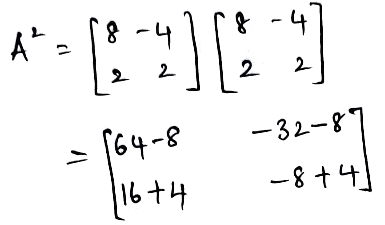 A² = [8 -4 2 2] [8 -4 2 2]
= [64-8 -32-8 16+4 -8+4]